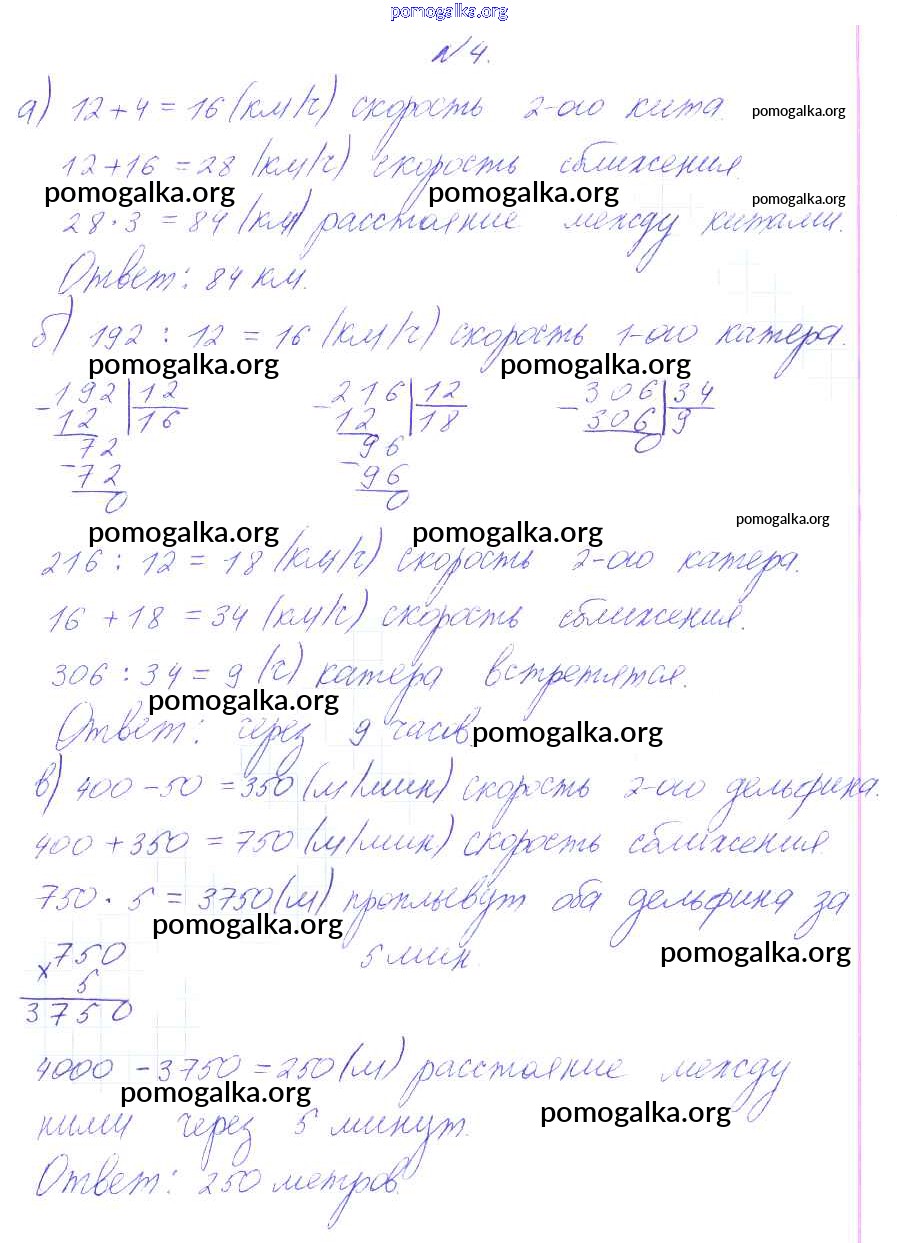 pomogalka.org
№ 4.
а) 12 + 4 = 16 (км/ч) скорость 2-ого кита. pomogalka.org
12 + 16 = 28 (км/ч) скорость сближения.
pomogalka.org pomogalka.org pomogalka.org
28 · 3 = 84 (км) расстояние между китами.
Ответ: 84 км.
б) 192 : 12 = 16 (км/ч) скорость 1-ого катера.
pomogalka.org pomogalka.org
- 192 | 12 - 216 | 12 - 306 | 34
12 | 16 12 | 18 306 | 9
72 96 0
- 72 - 96
0 0
pomogalka.org pomogalka.org pomogalka.org
216 : 12 = 18 (км/ч) скорость 2-ого катера.
16 + 18 = 34 (км/ч) скорость сближения.
306 : 34 = 9 (ч) катера встретятся.
pomogalka.org
Ответ: через 9 часов. pomogalka.org
в) 400 - 50 = 350 (м/мин) скорость 2-ого дельфина.
400 + 350 = 750 (м/мин) скорость сближения.
750 · 5 = 3750 (м) проплывут оба дельфина за
pomogalka.org
5 мин. pomogalka.org
× 750
5
3750
4000 - 3750 = 250 (м) расстояние между
pomogalka.org pomogalka.org
ними через 5 минут.
Ответ: 250 метров.